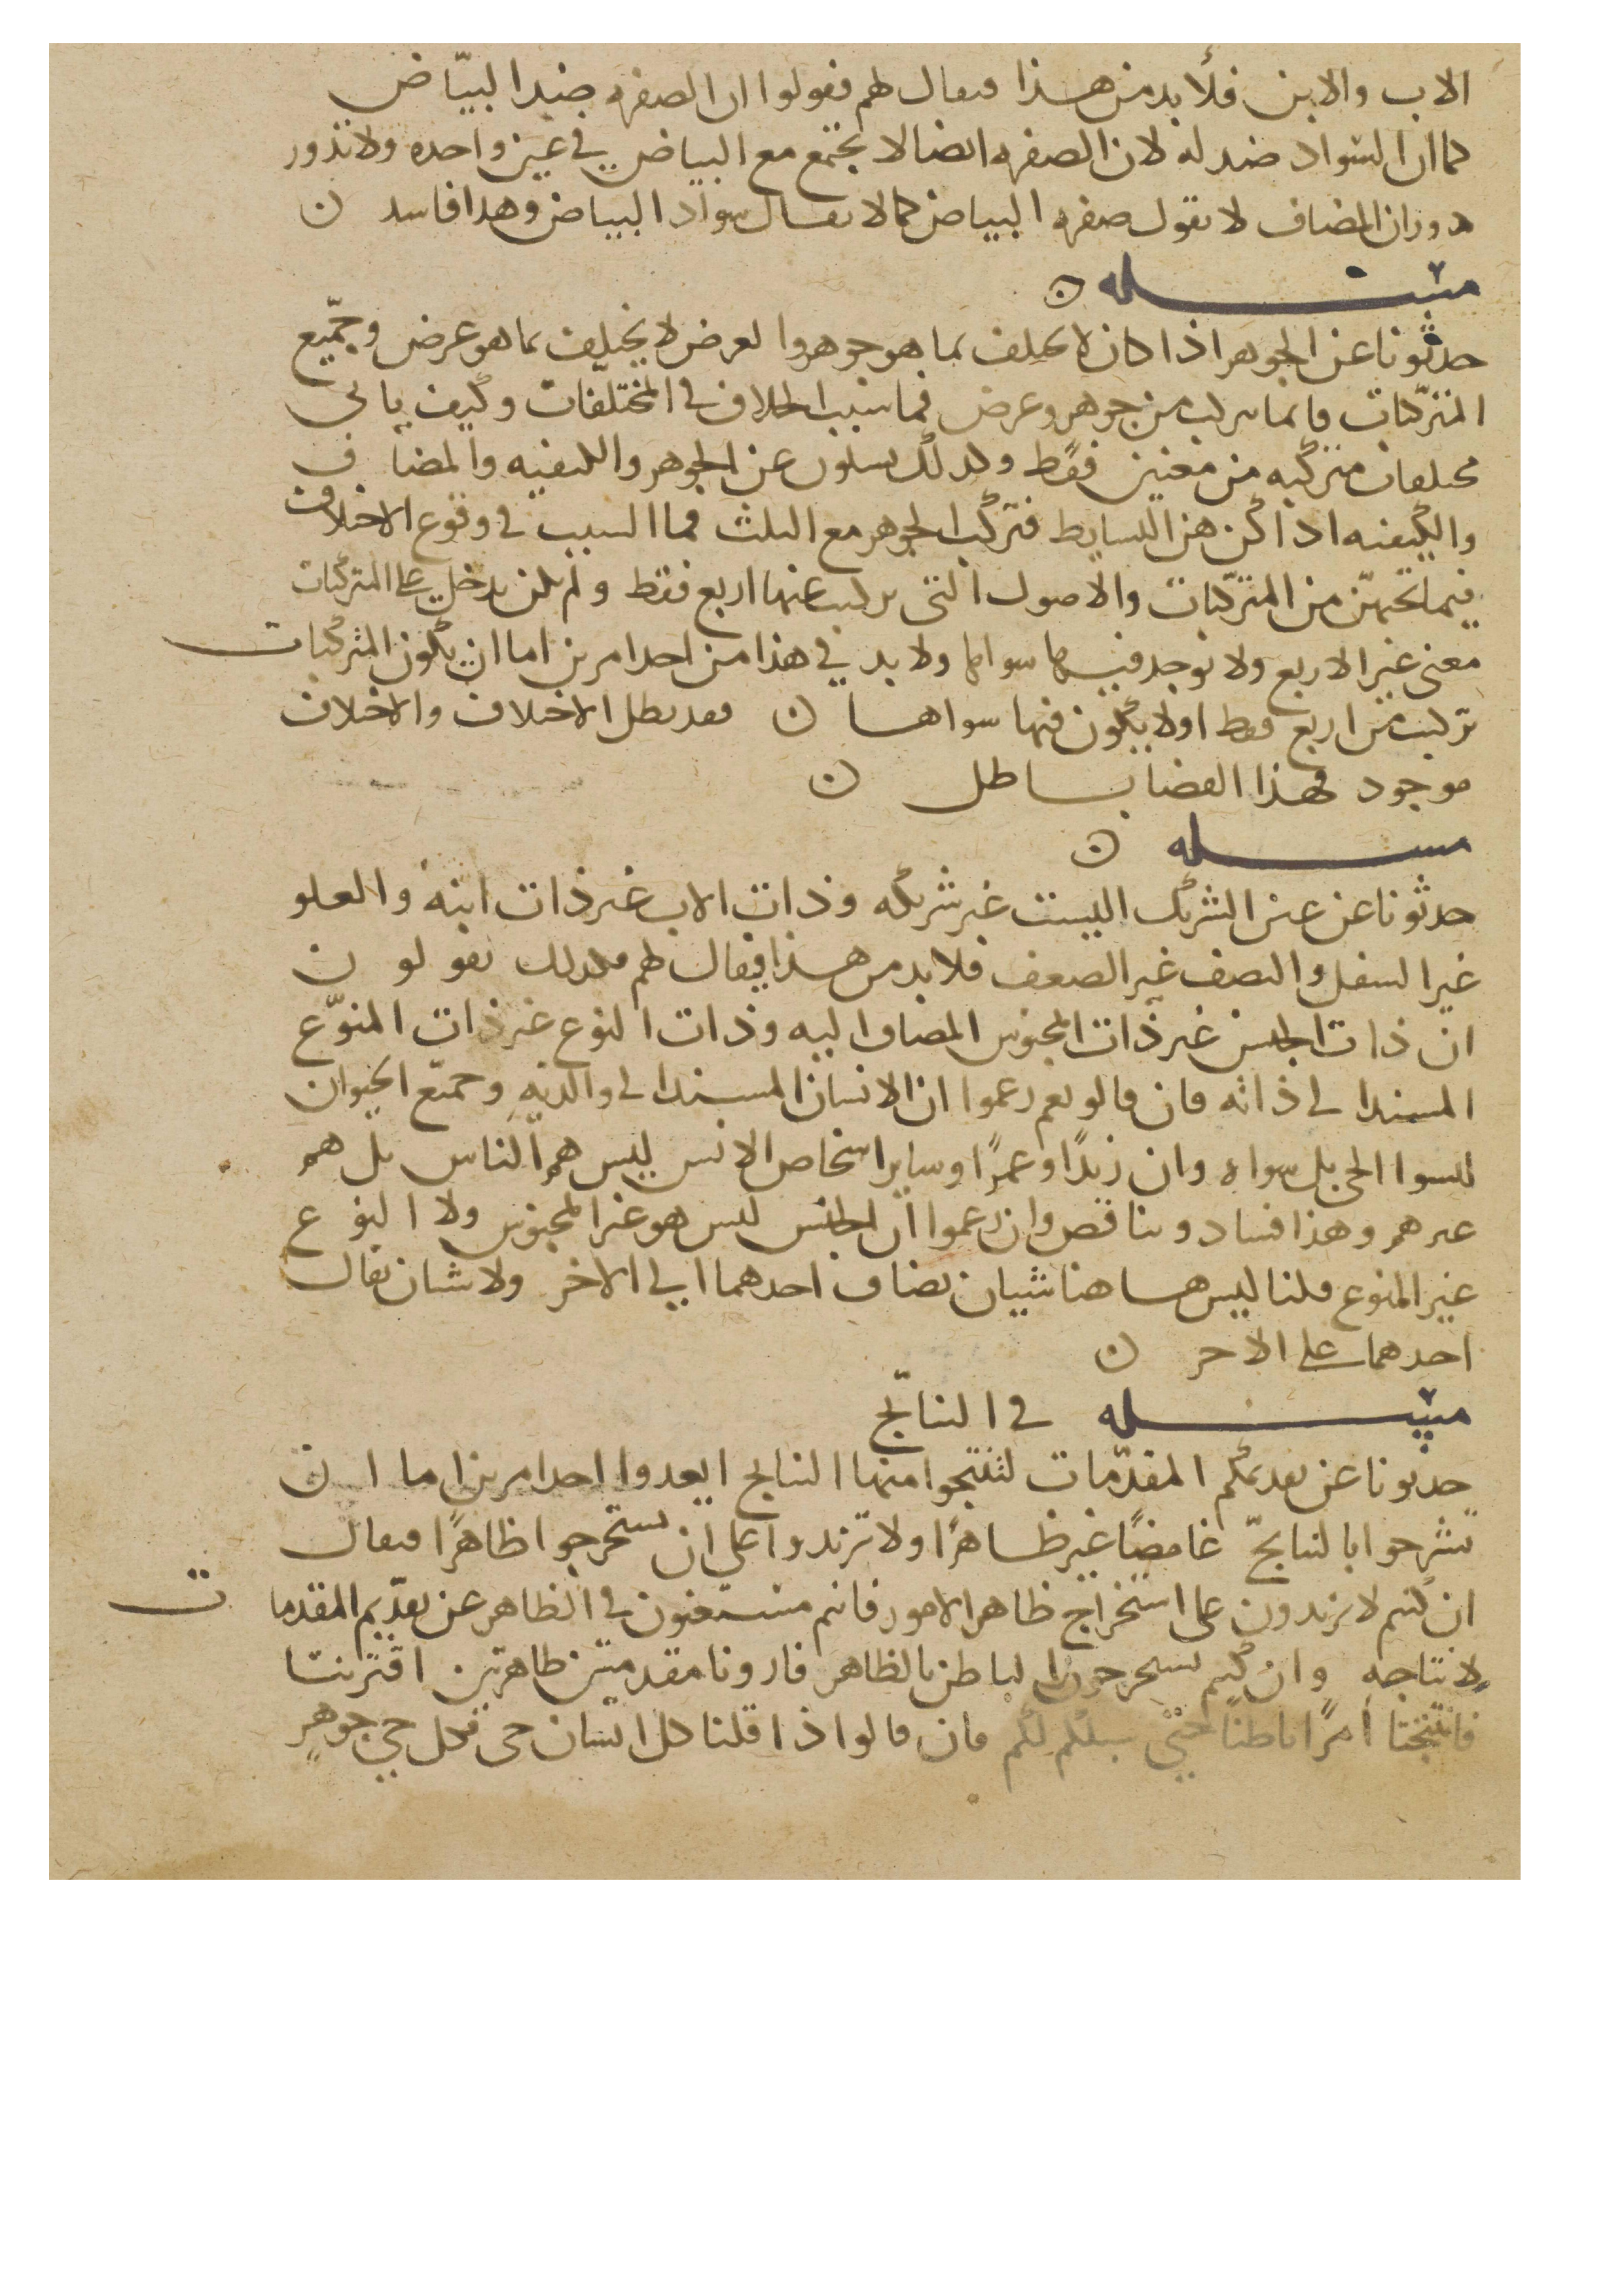 الاب والابن فلابد من هذا فيقال لهم فقولوا ان الصفره ضد البياض
كما ان السواد ضد له لان الصفره ايضا لا تجتمع مع البياض في عين واحده ولا تدور
دوران المضاف لا تقول صفره البياض كما لا يقال سواد البياض وهذا فاسد ن
مسئله ن
حدثونا عن الجوهر اذا كان لا يختلف بما هو جوهر والعرض لا يختلف بما هو عرض وجميع
المتركبات فانما تركبت من جوهر وعرض فما سبب الخلاف في المختلفات وكيف ياتي
مختلفات متركبه من معنيين فقط وكذلك يسلون عن الجوهر والكيفيه والمضاف
والكيفيه اذا كن هن البسايط فتركب الجوهر مع الثلث فما السبب في وقوع الاختلاف
فيما تحتهن من المتركبات والاصول التي تركبت عنها اربع فقط ولم يكن يدخل على المتركبات
معنى غير الاربع ولا يوجد فيها سواها ولا بد في هذا من احد امرين اما ان يكون المتركبات
تركبت من اربع فقط او لا يكون فيها سواها ن فقد بطل الاختلاف والاختلاف
موجود فهذا القضا باطل ن
مسله ن
حدثونا عن عين الشريك اليست غير شريكه وذات الاب غير ذات ابنه والعلو
غير السفل والنصف غير الضعف فلا بد من هذا فيقال لهم فكذلك تقولون
ان ذات الجنس غير ذات المجنوس المضاف اليه وذات النوع غير ذات المنوع
المسند الى ذاته فان قالو نعم زعموا ان الانسان المسند الى والديه وجميع الحيوان
ليسوا الحي بل سواه وان زيدًا وعمرًا وساير اشخاص الانس ليس هم الناس بل هم
غيرهم وهذا فساد وتناقض وان زعموا ان الجنس ليس هو غير المجنوس ولا النوع
غير المنوع قلنا ليس هاهنا شيان يضاف احدهما الى الاخر ولا شان يقال
احدهما على الاخر ن
مسئله في النتائج
حدثونا عن تقديمكم المقدمات لتنتجوا منها النتايج ايعدوا احد امرين اما ان
تشرحوا بالنتايج غامضًا غير ظاهرًا ولا تزيدوا على ان تستخرجوا ظاهرًا فيقال
ان كنتم لا تزيدون على استخراج ظاهر الامور فانتم مستغنون في الظاهر عن تقديم المقدمات
لانتاجه وان كنتم تستخرجون الباطن بالظاهر فارونا مقدمتين ظاهرتين اقترنتا
فانتجتا امرًا باطنًا حتى نسلم لكم فان قالوا اذا قلنا كل انسان حي فكل حي جوهر